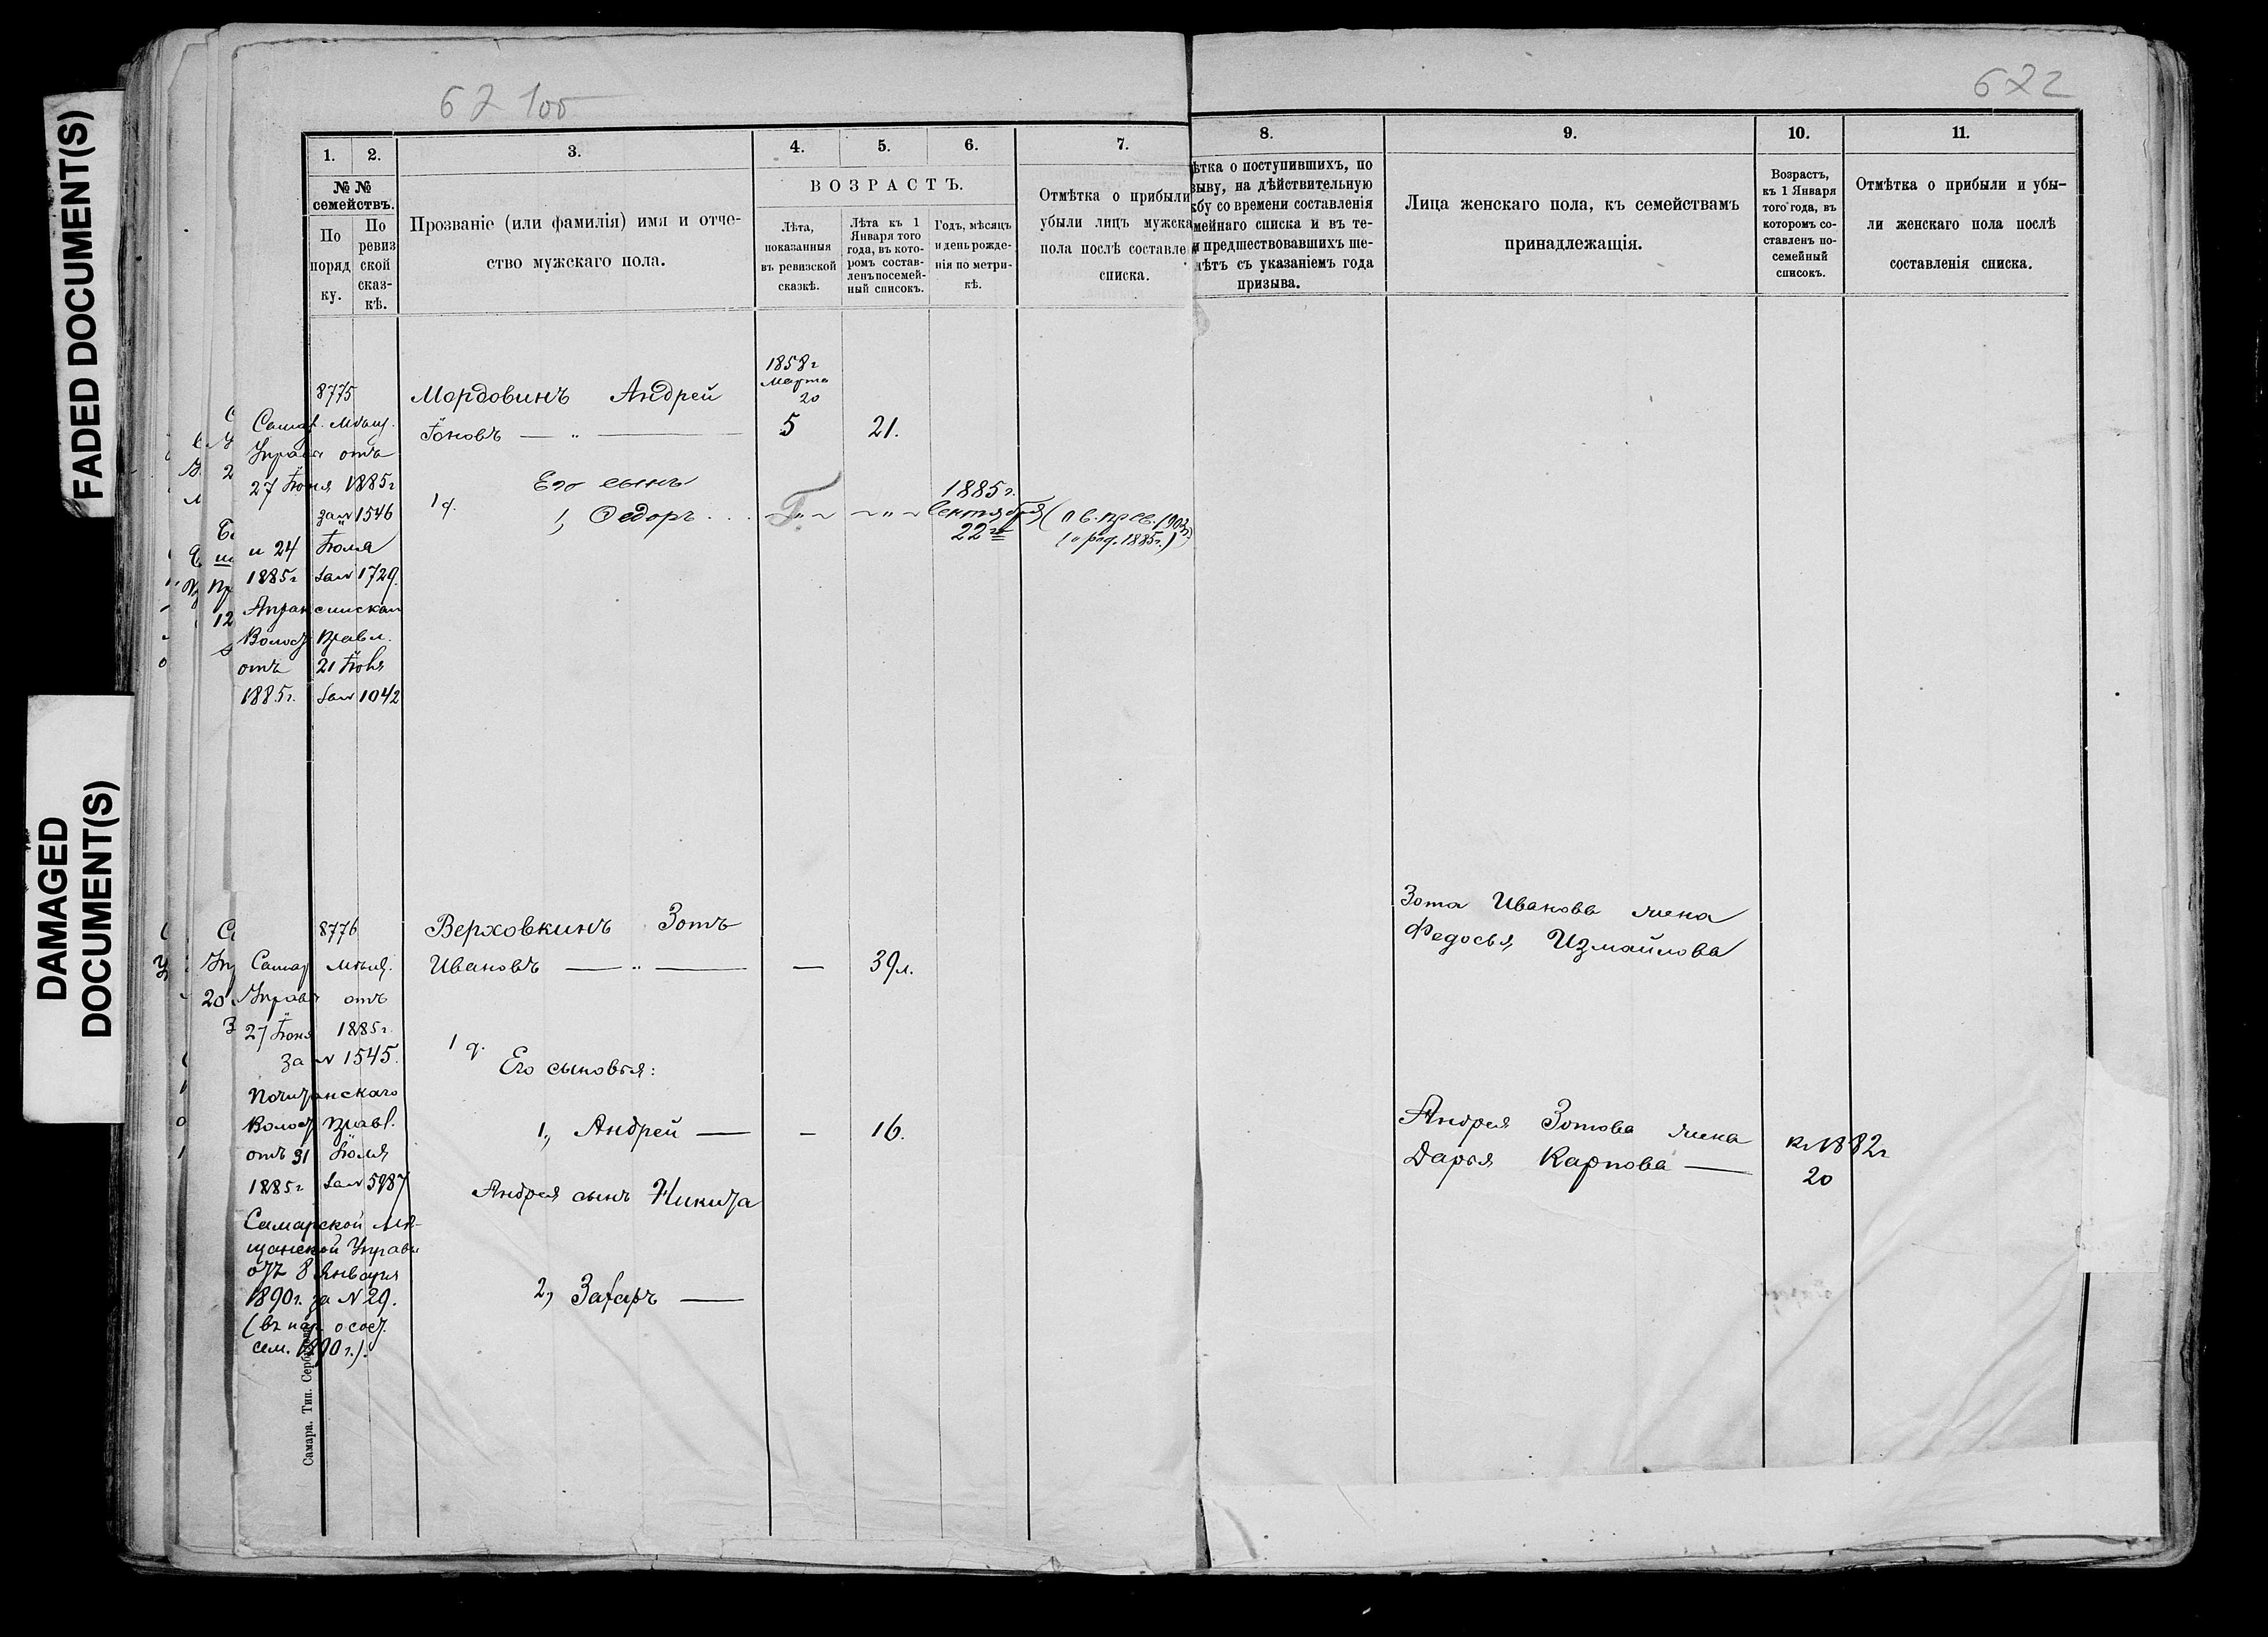 FADED DOCUMENT(S)
DAMAGED
DOCUMENT(S)
67 100
622
1.
2.
3.
4.
5.
6.
7.
8.
9.
10.
11.
№ №
семействъ.
По
поряд
ку.
По
ревиз
ской
сказ-
кѣ.
Прозваніе (или фамилія) имя и отче-
ство мужскаго пола.
ВОЗРАСТЪ.
Лѣта,
показанныя
въ ревизской
сказкѣ.
Лѣта къ 1
Января того
года, въ кото-
ромъ состав-
ленъ посемей-
ный списокъ.
Годъ, мѣсяцъ
и день рожде-
нія по метри-
кѣ.
Отмѣтка о прибыли
убыли лицъ мужска
пола послѣ составле
списка.
ѣтка о поступившихъ, по
зыву, на дѣйствительную
жбу со времени составленія
мейнаго списка и въ те-
и предшествовавшихъ ше-
лѣтъ съ указаніемъ года
призыва.
Лица женскаго пола, къ семействамъ
принадлежащія.
Возрастъ,
къ 1 Января
того года, въ
которомъ со-
ставленъ по-
семейный
списокъ.
Отмѣтка о прибыли и убы-
ли женскаго пола послѣ
составленія списка.
8775
Самар. Мѣщ.
Управы отъ
27 Іюня 1885г
за № 1546
и 24 Іюля
1885г за № 1729.
Волост Правл.
отъ 21 Іюля
1885г. за № 1042
Мордовинъ Андрей
Іоновъ — „ —
1858г
Марта
20
5
21.
Его сынъ
1 q.
1, Ѳедоръ . . .
1885 г.
Сентября
22го
8776
Самар Мѣщ.
Управы отъ
27 Іюня 1885г.
за № 1545.
Волост Правл.
отъ 31 Іюля
1885г за № 5987
Самарской Мѣ-
щанской Управы
отъ 8 Января
1890г. за № 29.
сем. 1890 г.).
Верховкинъ Зотъ
Ивановъ — „ —
—
39л.
1 q.
Его сыновья:
1, Андрей —
—
16.
Андрея сынъ Никита
2, Захаръ —
Зота Иванова жена
Федосья Измайлова
Андрея Зотова жена
Дарья Карпова —
къ 1882г
20
Самара. Тип.